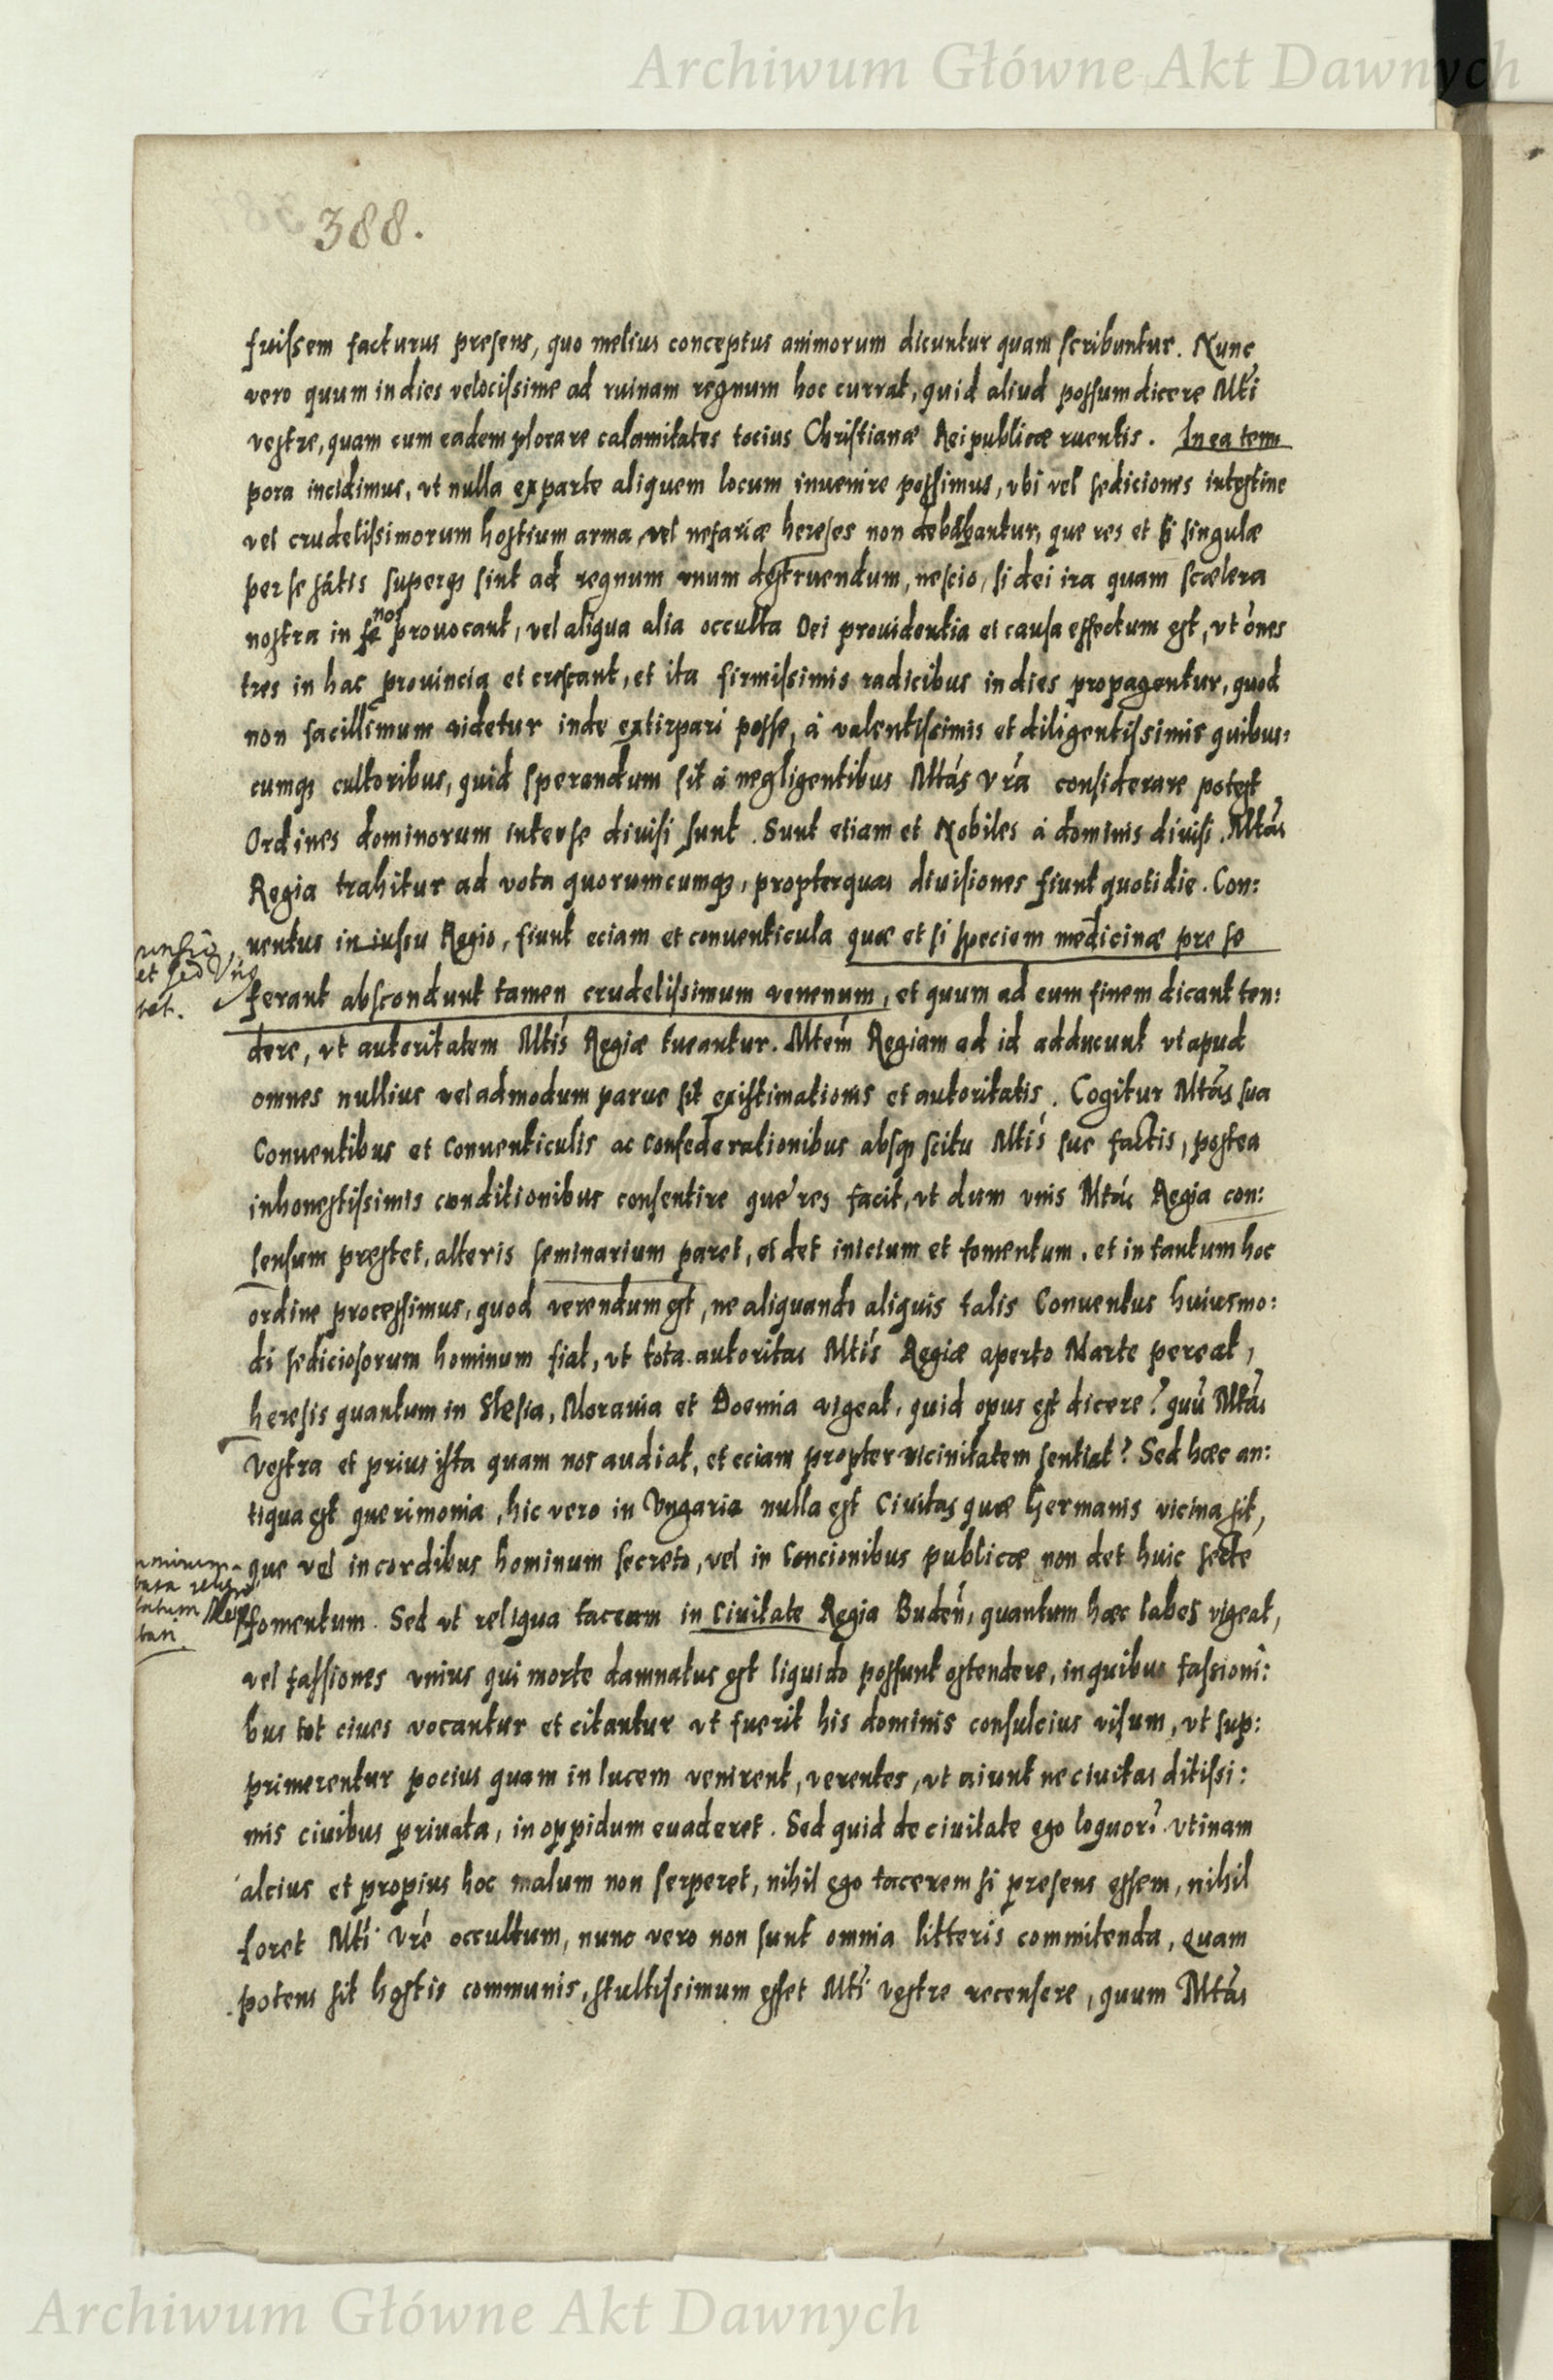 Archiwum Główne Akt Dawnych
388.
fuissem facturus presens, quo melius conceptus animorum dicuntur quam scribuntur. Nunc
vero quum in dies velocissime ad ruinam regnum hoc currat, quid aliud possum dicere Mti
vestre, quam cum eadem plorare calamitates tocius Christianæ Reipublicæ ruentis. In ea tem
pora incidimus, vt nulla ex parte aliquem locum inuenire possimus, vbi vel sediciones intestine
vel crudelissimorum hostium arma, vel nefariæ hereses non debachantur, que res et si singulæ
per se satis superq; sint ad regnum vnum destruendum, nescio, si dei ira quam scælera
nostra in se nos prouocant, vel aliqua alia occulta Dei prouidentia et causa effectum est, vt ones
tres in hac prouincia et crescant, et ita firmissimis radicibus in dies propagentur, quod
non facillimum videtur inde extirpari posse, à valentissimis et diligentissimis quibus:
cumq; cultoribus, quid sperandum sit à negligentibus Mtas Vra considerare potest
Ordines dominorum inter se diuisi sunt. Sunt etiam et Nobiles à dominis diuisi. Mtas
Regia trahitur ad vota quorumcumq;, propter quas diuisiones fiunt quotidie. Con:
uentus in iussu Regio, fiunt eciam et conuenticula quæ et si speciem medicinæ pre se
et sed
tet.
ferant abscondunt tamen crudelissimum venenum, et quum ad eum finem dicant ten:
dere, vt autoritatem Mtis Regiæ tueantur. Mtem Regiam ad id adducunt vt apud
omnes nullius vel admodum parue sit existimationis et autoritatis. Cogitur Mtas sua
Conuentibus et Conuenticulis ac confederationibus absq; scitu Mtis sue factis, postea
inhonestissimis conditionibus consentire que res facit, vt dum vnis Mtas Regia con:
sensum prestet, alteris seminarium paret, et det inicium et fomentum. et in tantum hoc
ordine processimus, quod verendum est, ne aliquando aliquis talis Conuentus huiusmo:
di sediciosorum hominum fiat, vt tota autoritas Mtis Regiæ aperto Marte pereat,
heresis quantum in Slesia, Morauia et Boemia vigeat, quid opus est dicere? quu Mtas
Vestra et prius ista quam nos audiat, et eciam propter vicinitatem sentiat? Sed hæc an:
tiqua est querimonia, hic vero in Vngaria nulla est Ciuitas quæ Germanis vicina sit,
que vel in cordibus hominum secreto, vel in Concionibus publicæ non det huic secte
fomentum. Sed vt reliqua taceam in Ciuitate Regia Buden, quantum hæc labes vigeat,
vel fassiones vnius qui morte damnatus est liquido possunt ostendere, in quibus fassioni:
bus tot ciues vocantur et citantur vt fuerit his dominis consulcius visum, vt sup:
primerentur pocius quam in lucem venirent, verentes, vt aiunt ne ciuitas ditissi:
mis ciuibus priuata, in oppidum euaderet. Sed quid de ciuitate ego loquor? vtinam
alcius et propius hoc malum non serperet, nihil ego tacerem si presens essem, nihil
foret Mti Vre occultum, nunc vero non sunt omnia litteris commitenda, quam
potens sit hostis communis, stultissimum esset Mti vestre recensere, quum Mtas
Archiwum Główne Akt Dawnych